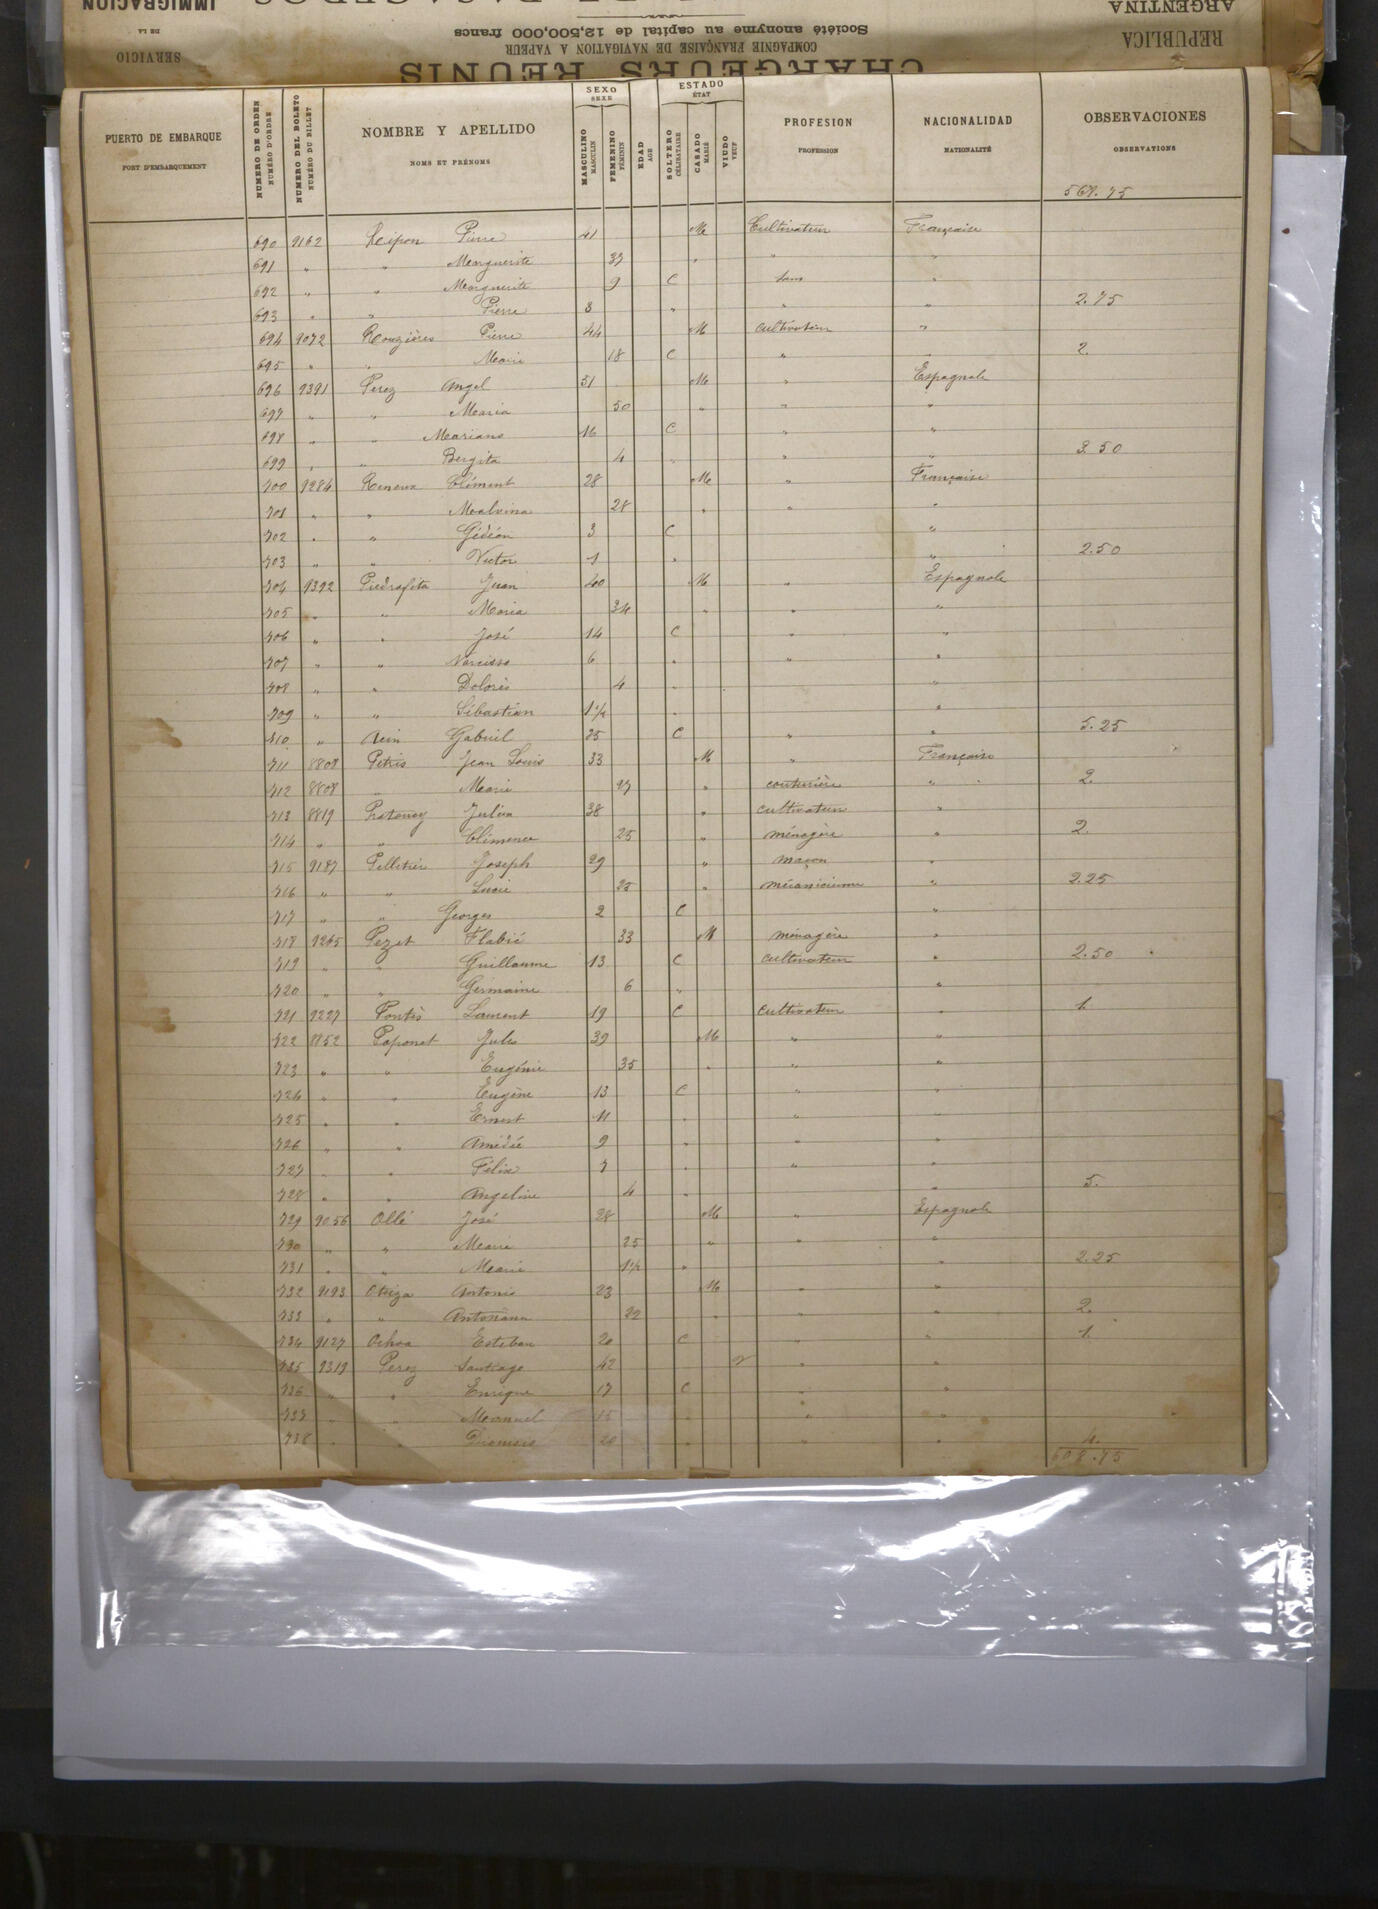 IMMIGRACION
DE LA
SERVICIO
ARGENTINA
REPUBLICA
Société anonyme au capital de 12,500,000 francs
COMPAGNIE FRANÇAISE DE NAVIGATION A VAPEUR
CHARGEURS REUNIS
PUERTO DE EMBARQUE NUMERO DE ORDEN NUMERO DEL BOLETO NOMBRE Y APELLIDO SEXO EDAD ESTADO PROFESION NACIONALIDAD OBSERVACIONES
PORT D'EMBARQUEMENT NUMÉRO D'ORDRE NUMÉRO DU BILLET NOMS ET PRÉNOMS SEXE AGE ÉTAT PROFESSION NATIONALITÉ OBSERVATIONS
MASCULINO FEMENINO SOLTERO CASADO VIUDO
MASCULIN FÉMININ CÉLIBATAIRE MARIÉ VEUF
569.75
690 9162 Pierre 41 M Cultivateur Française
691 " " Marguerite 37 " " "
692 " " Marguerite 9 C sans "
693 " " Pierre 3 " " " 2.75
694 9072 Rouzières Pierre 44 M cultivateur "
695 " " Marie 18 C " " 2.
696 9391 Perez Angel 51 M " Espagnole
697 " " Maria 50 " " "
698 " " Mariano 16 C " "
699 " " Bergita 4 " " " 3.50
700 9284 Clément 28 M " Française
701 " " Malvina 28 " " "
702 " " Gédéon 3 C "
703 " " Victor 1 " " 2.50
704 9392 Piedrafita Juan 40 M " Espagnole
705 " " Maria 34 " " "
706 " " José 14 C " "
707 " " Narcisso 6 " " "
708 " " Dolorès 4 " "
709 " " Sébastian 1 1/2 " "
710 " Gabriel 25 C " " 5.25
711 8808 Petris Jean Louis 33 M " Française
712 8808 " Marie 27 " couturière " 2.
713 8819 Julien 38 " cultivateur "
714 " " Clémence 25 " ménagère " 2.
715 9187 Pelletier Joseph 29 " maçon "
716 " " Lucie 23 " mécanicienne " 2.25
717 " " Georges 2 C "
718 9265 Pezet Flabié 33 M ménagère "
719 " " Guillaume 13 C cultivateur " 2.50
720 " " Germaine 6 " "
721 9227 Pontès Laurent 19 C cultivateur " 1.
722 8852 Paponet Jules 39 M " "
723 " " Eugénie 35 " " "
724 " " Eugène 13 C " "
725 " " Ernest 11 " " "
726 " " Amédée 9 " " "
727 " " Félix 7 " " "
728 " " Angeline 4 " " 5.
729 9056 Ollé José 28 M " Espagnole
730 " " Marie 25 " " "
731 " " Marie 1 1/2 " " 2.25
732 9193 Antonio 23 M " "
733 " " 22 " " " 2.
734 9127 Ochoa Esteban 20 C " " 1.
735 9319 Perez Santiago 42 V " "
736 " " Enrique 17 C " "
737 " " Manuel 15 " " "
738 " " Dionisio 20 " " " 4.
608.75